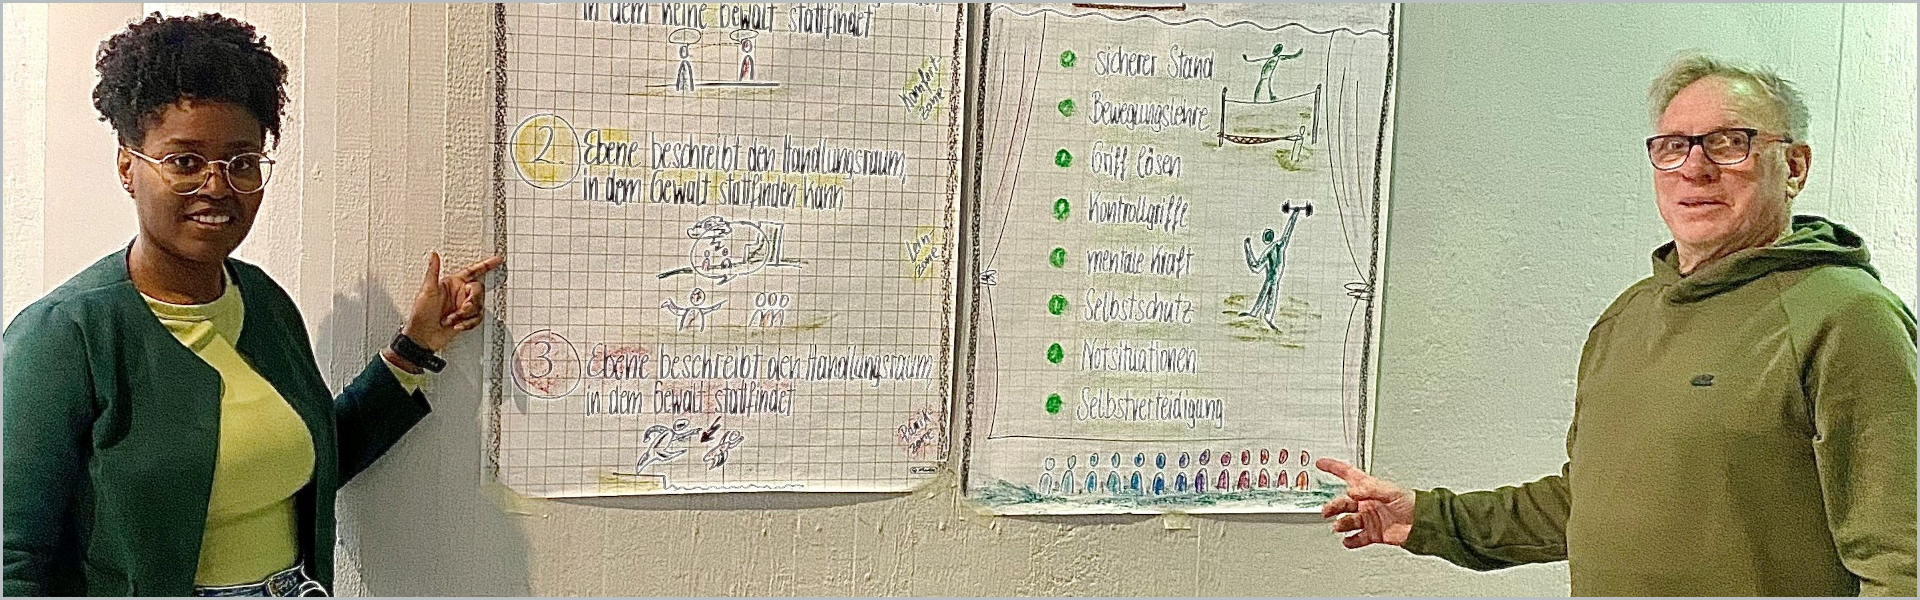 in dem keine Gewalt stattfindet
Komfort-
zone
2. Ebene beschreibt den Handlungsraum,
in dem Gewalt stattfinden kann
Lern-
zone
3. Ebene beschreibt den Handlungsraum,
in dem Gewalt stattfindet
Panik-
zone
sicherer Stand
Bewegungslehre
Griff lösen
Kontrollgriffe
mentale Kraft
Selbstschutz
Notsituationen
Selbstverteidigung